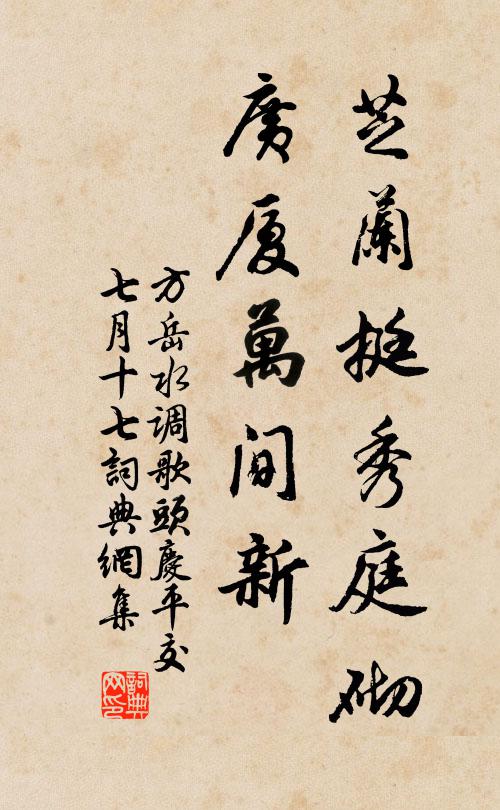 芝蘭挺秀庭砌
廣厦萬间新
方岳水调歌頭慶平交
七月十七詞典網集
詞典网印